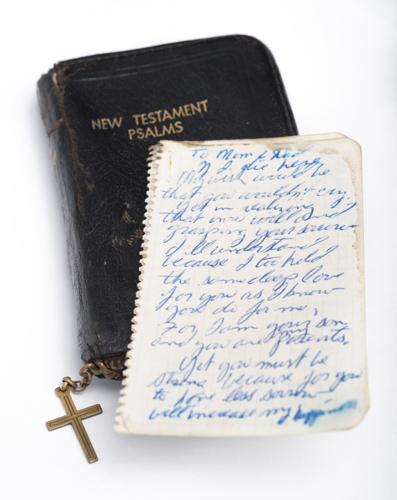 NEW TESTAMENT
PSALMS
To Mom & Dad
If I die here
My wish would be
that you wouldn't cry,
Yet in realizing
that you will and
grasping your sorrow
I'll understand
because I too hold
the same deep love
for you as I know
you do for me,
For I am your son
and you are parents,
Yet you must be
strong because for you
to have less sorrow
will increase my happiness